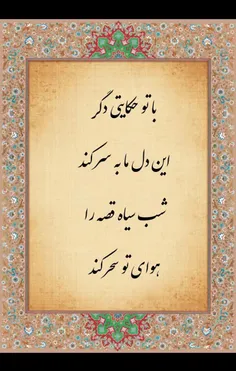 با تو حکایتی دگر
این دل ما به سر کند
شب سیاه قصه را
هوای تو سحر کند